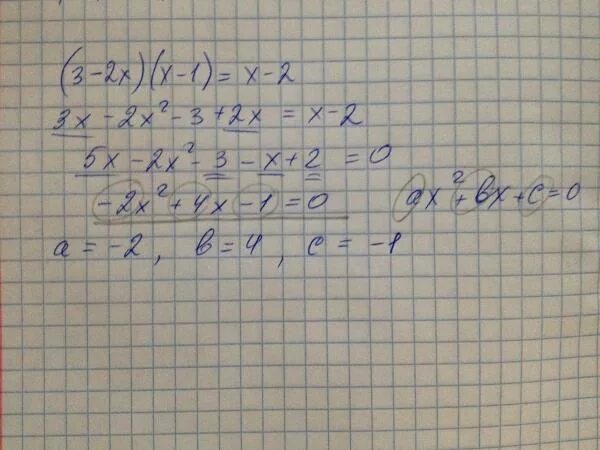 (3-2x)(x-1)= x-2
3x - 2x² - 3 + 2x = x-2
5x - 2x² - 3 - x + 2 = 0
-2x² + 4x - 1 = 0
ax² + bx + c = 0
a = -2, b = 4, c = -1